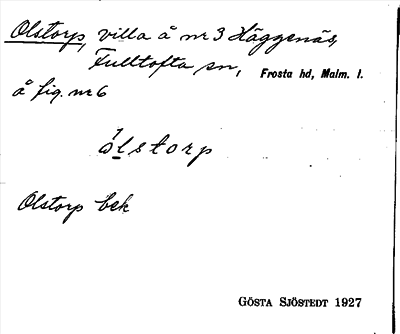 Olstorp, villa å nr 3 Häggenäs,
Fulltofta sn, Frosta hd, Malm. l.
å fig. nr 6
ólstorp
Olstorp bek
GÖSTA SJÖSTEDT 1927